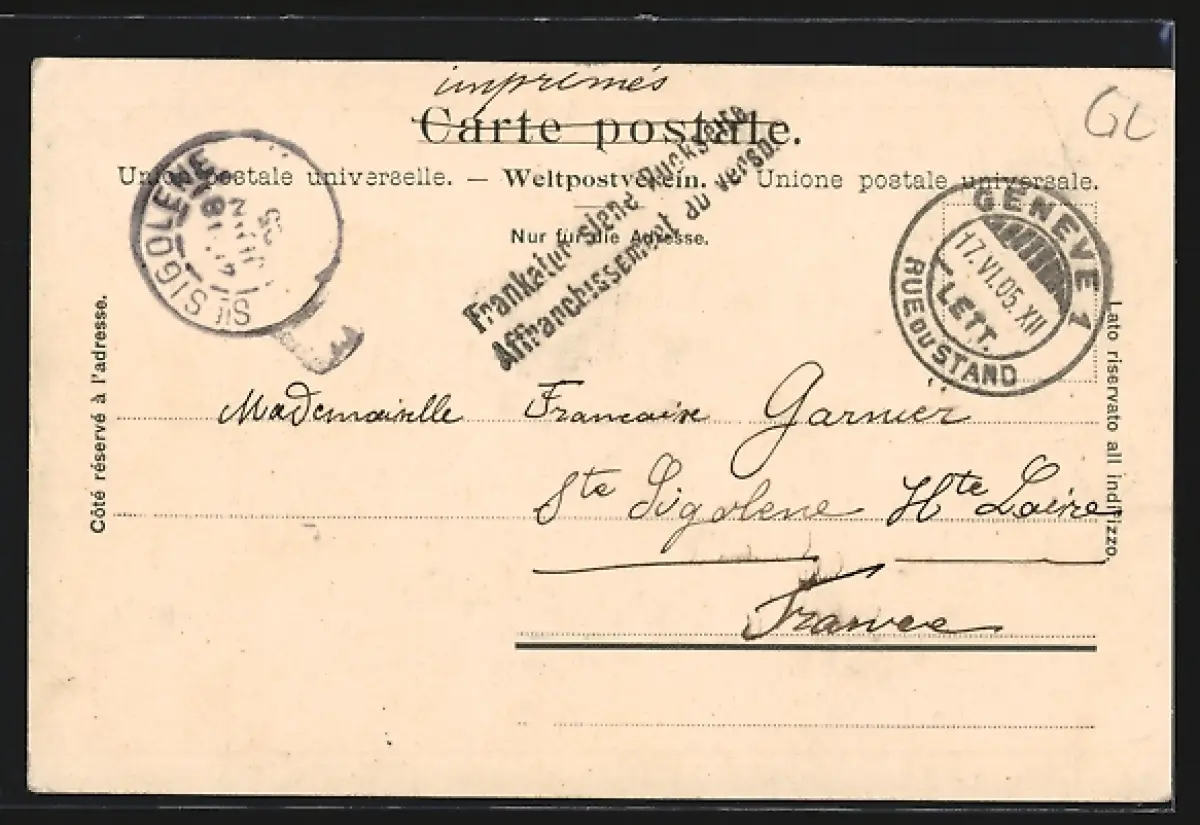 imprimés
Carte postale.
Union postale universelle. — Weltpostverein. — Unione postale universale.
Nur für die Adresse.
GL
STE SIGOLENE
18
JUIN
05
Frankatur siehe Rückseite
Affranchissement au verso.
GENÈVE 1
17.VI.05.XII
LETT.
RUE DU STAND
Côté réservé à l'adresse.
Lato riservato all indirizzo.
Mademoiselle Garnier
Ste Sigolene Hte Loire
France